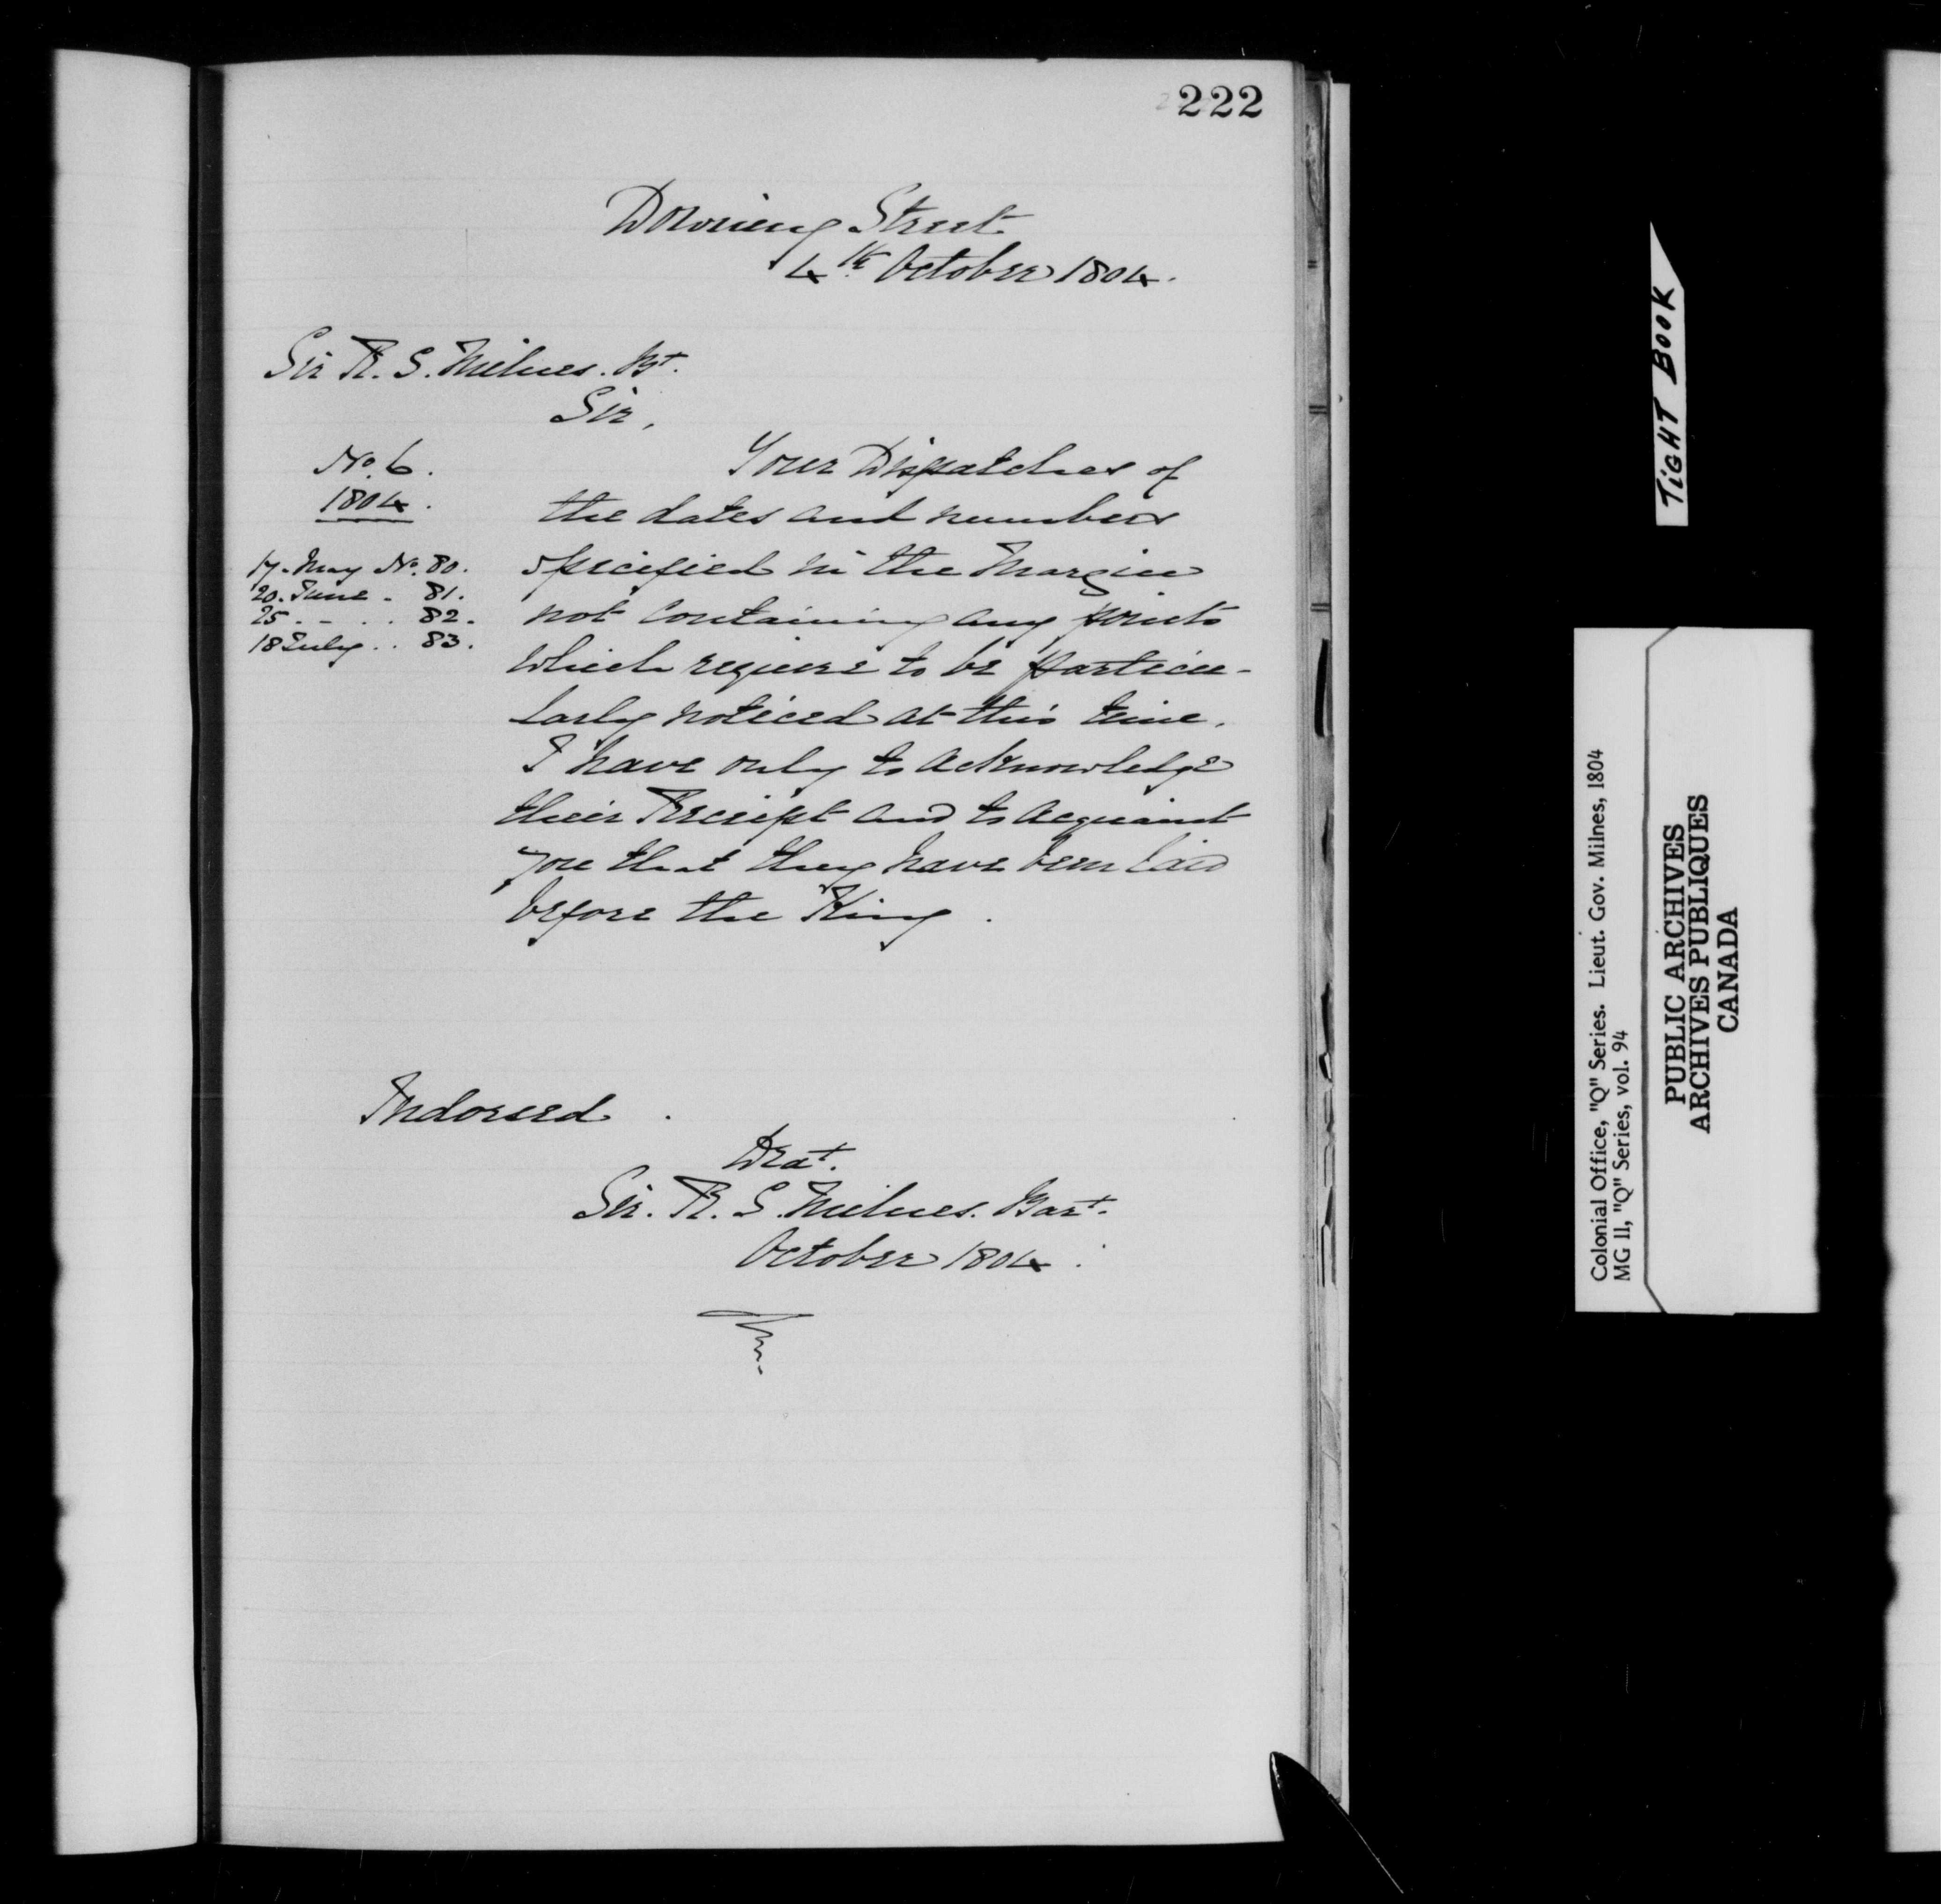 222
Downing Street
4th October 1804.
Sir R. S. Milnes. Bt.
Sir,
No. 6.
1804.
17. May No. 80.
20. June . 81.
25 . - . . 82.
18 July . . 83.
Your Dispatches of
the dates and numbers
specified in the Margin
not containing any points
which require to be particu-
larly noticed at this time.
I have only to acknowledge
their Receipt and to acquaint
you that they have been laid
before the King.
Indorsed.
Drat.
Sir. R. S. Milnes. Bart.
October 1804.
TIGHT BOOK
Colonial Office, "Q" Series. Lieut. Gov. Milnes, 1804
MG 11, "Q" Series, vol. 94
PUBLIC ARCHIVES
ARCHIVES PUBLIQUES
CANADA